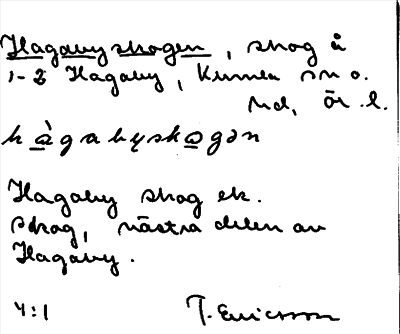 Hagabyskogen, skog å
1-2 Hagaby, Kumla sn o.
hd, Ör.l.
hàgabyskogən
Hagaby skog ek.
Skog, västra delen av
Hagaby.
4:1 T. Ericsson